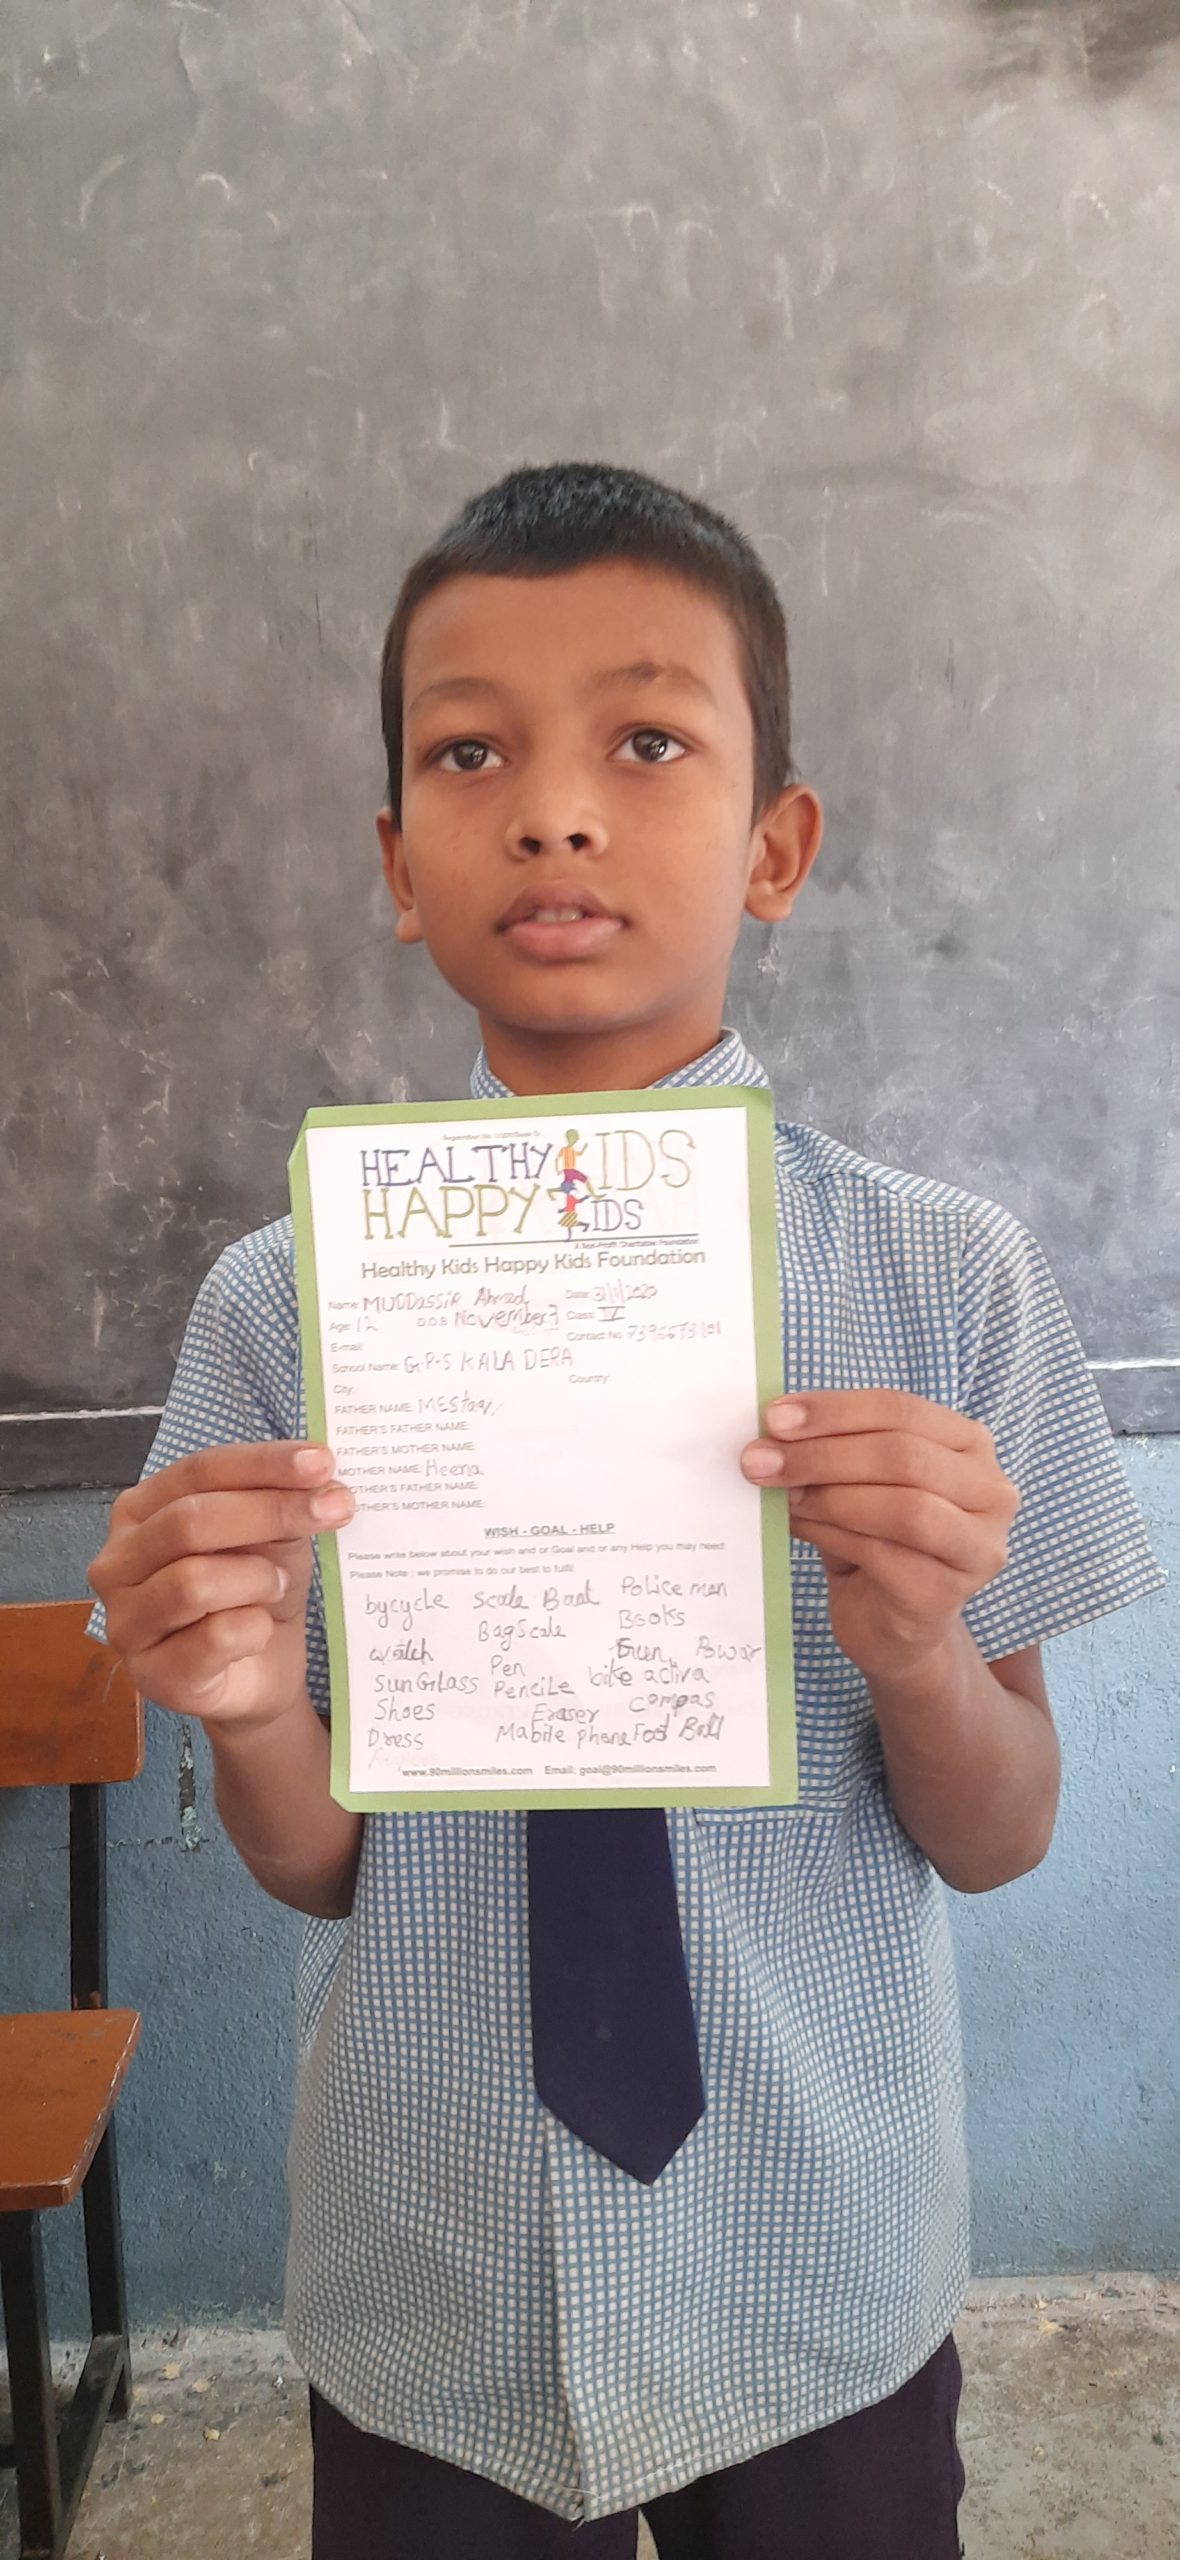 HEALTHY KIDS
HAPPY KIDS
A Non-Profit Charitable Foundation
Healthy Kids Happy Kids Foundation
Name: MUDDassiR Ahmed Date:
Age: 12 D.O.B November 7 Class: IV
E-mail: Contact No
School Name: G.P.S KALA DERA
City: Country:
FATHER NAME:
FATHER'S FATHER NAME:
FATHER'S MOTHER NAME:
MOTHER NAME: Heena
OTHER'S FATHER NAME:
OTHER'S MOTHER NAME:
WISH - GOAL - HELP
Please write below about your wish and or Goal and or any Help you may need:
Please Note : we promise to do our best to fulfil:
bycycle Scale Baat Police man
BagScale Books
watch Pen Gun Powar
SunGlass PenciLe bike activa
Shoes Eraser compas
Dress Mabile phone Foot Ball
www.90millionsmiles.com Email: goal@90millionsmiles.com